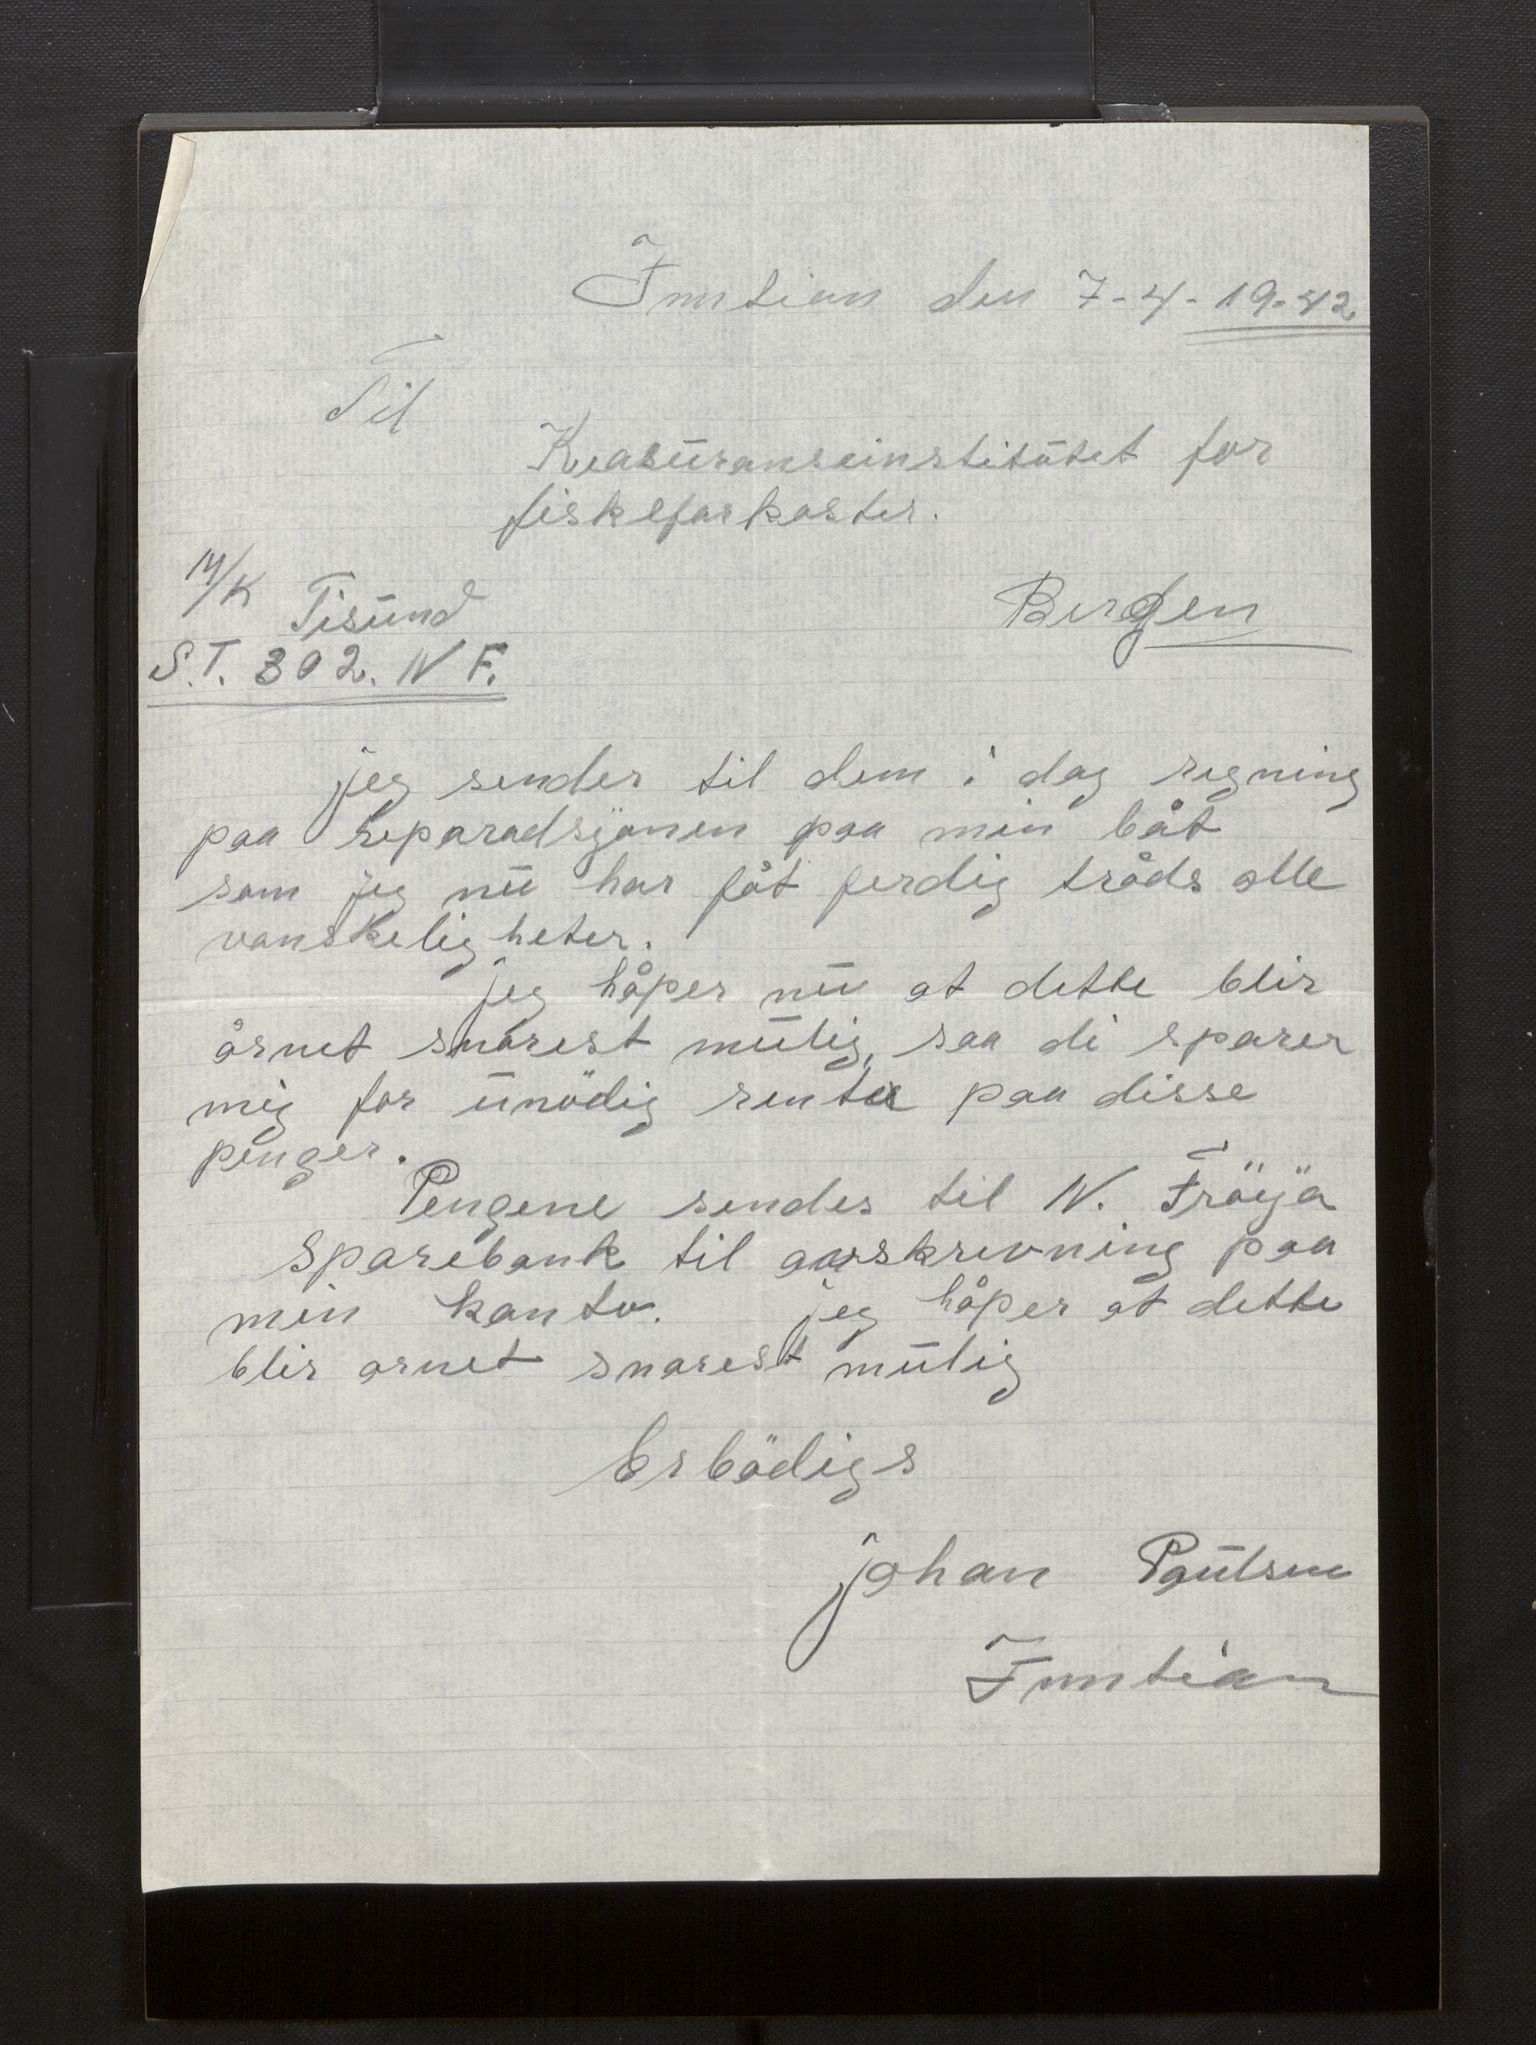 Inntian den 7-4-19-42.
Til
Reasuranseinstitutet for
fiskefarkoster.
M/K Tisund
Bergen
S.T. 302. N F.
jeg sender til dem i dag regning
paa reparadsjonen paa min båt
som jeg nu har fåt ferdig tråds alle
vanskeligheter.
jeg håper nu at dette blir
årnet snarest mulig, saa di sparer
mig for unödig renter paa disse
penger.
Pengene sendes til N. Fröija
Sparebank til avskrevning paa
min konto. jeg håper at dette
blir arnet snarest mulig
Erbödigs
johan Paulsen
Inntian